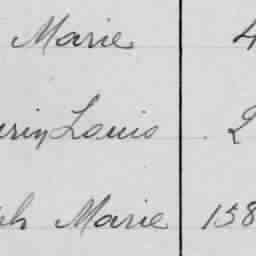 Marie 4
Louis 2
Marie 158